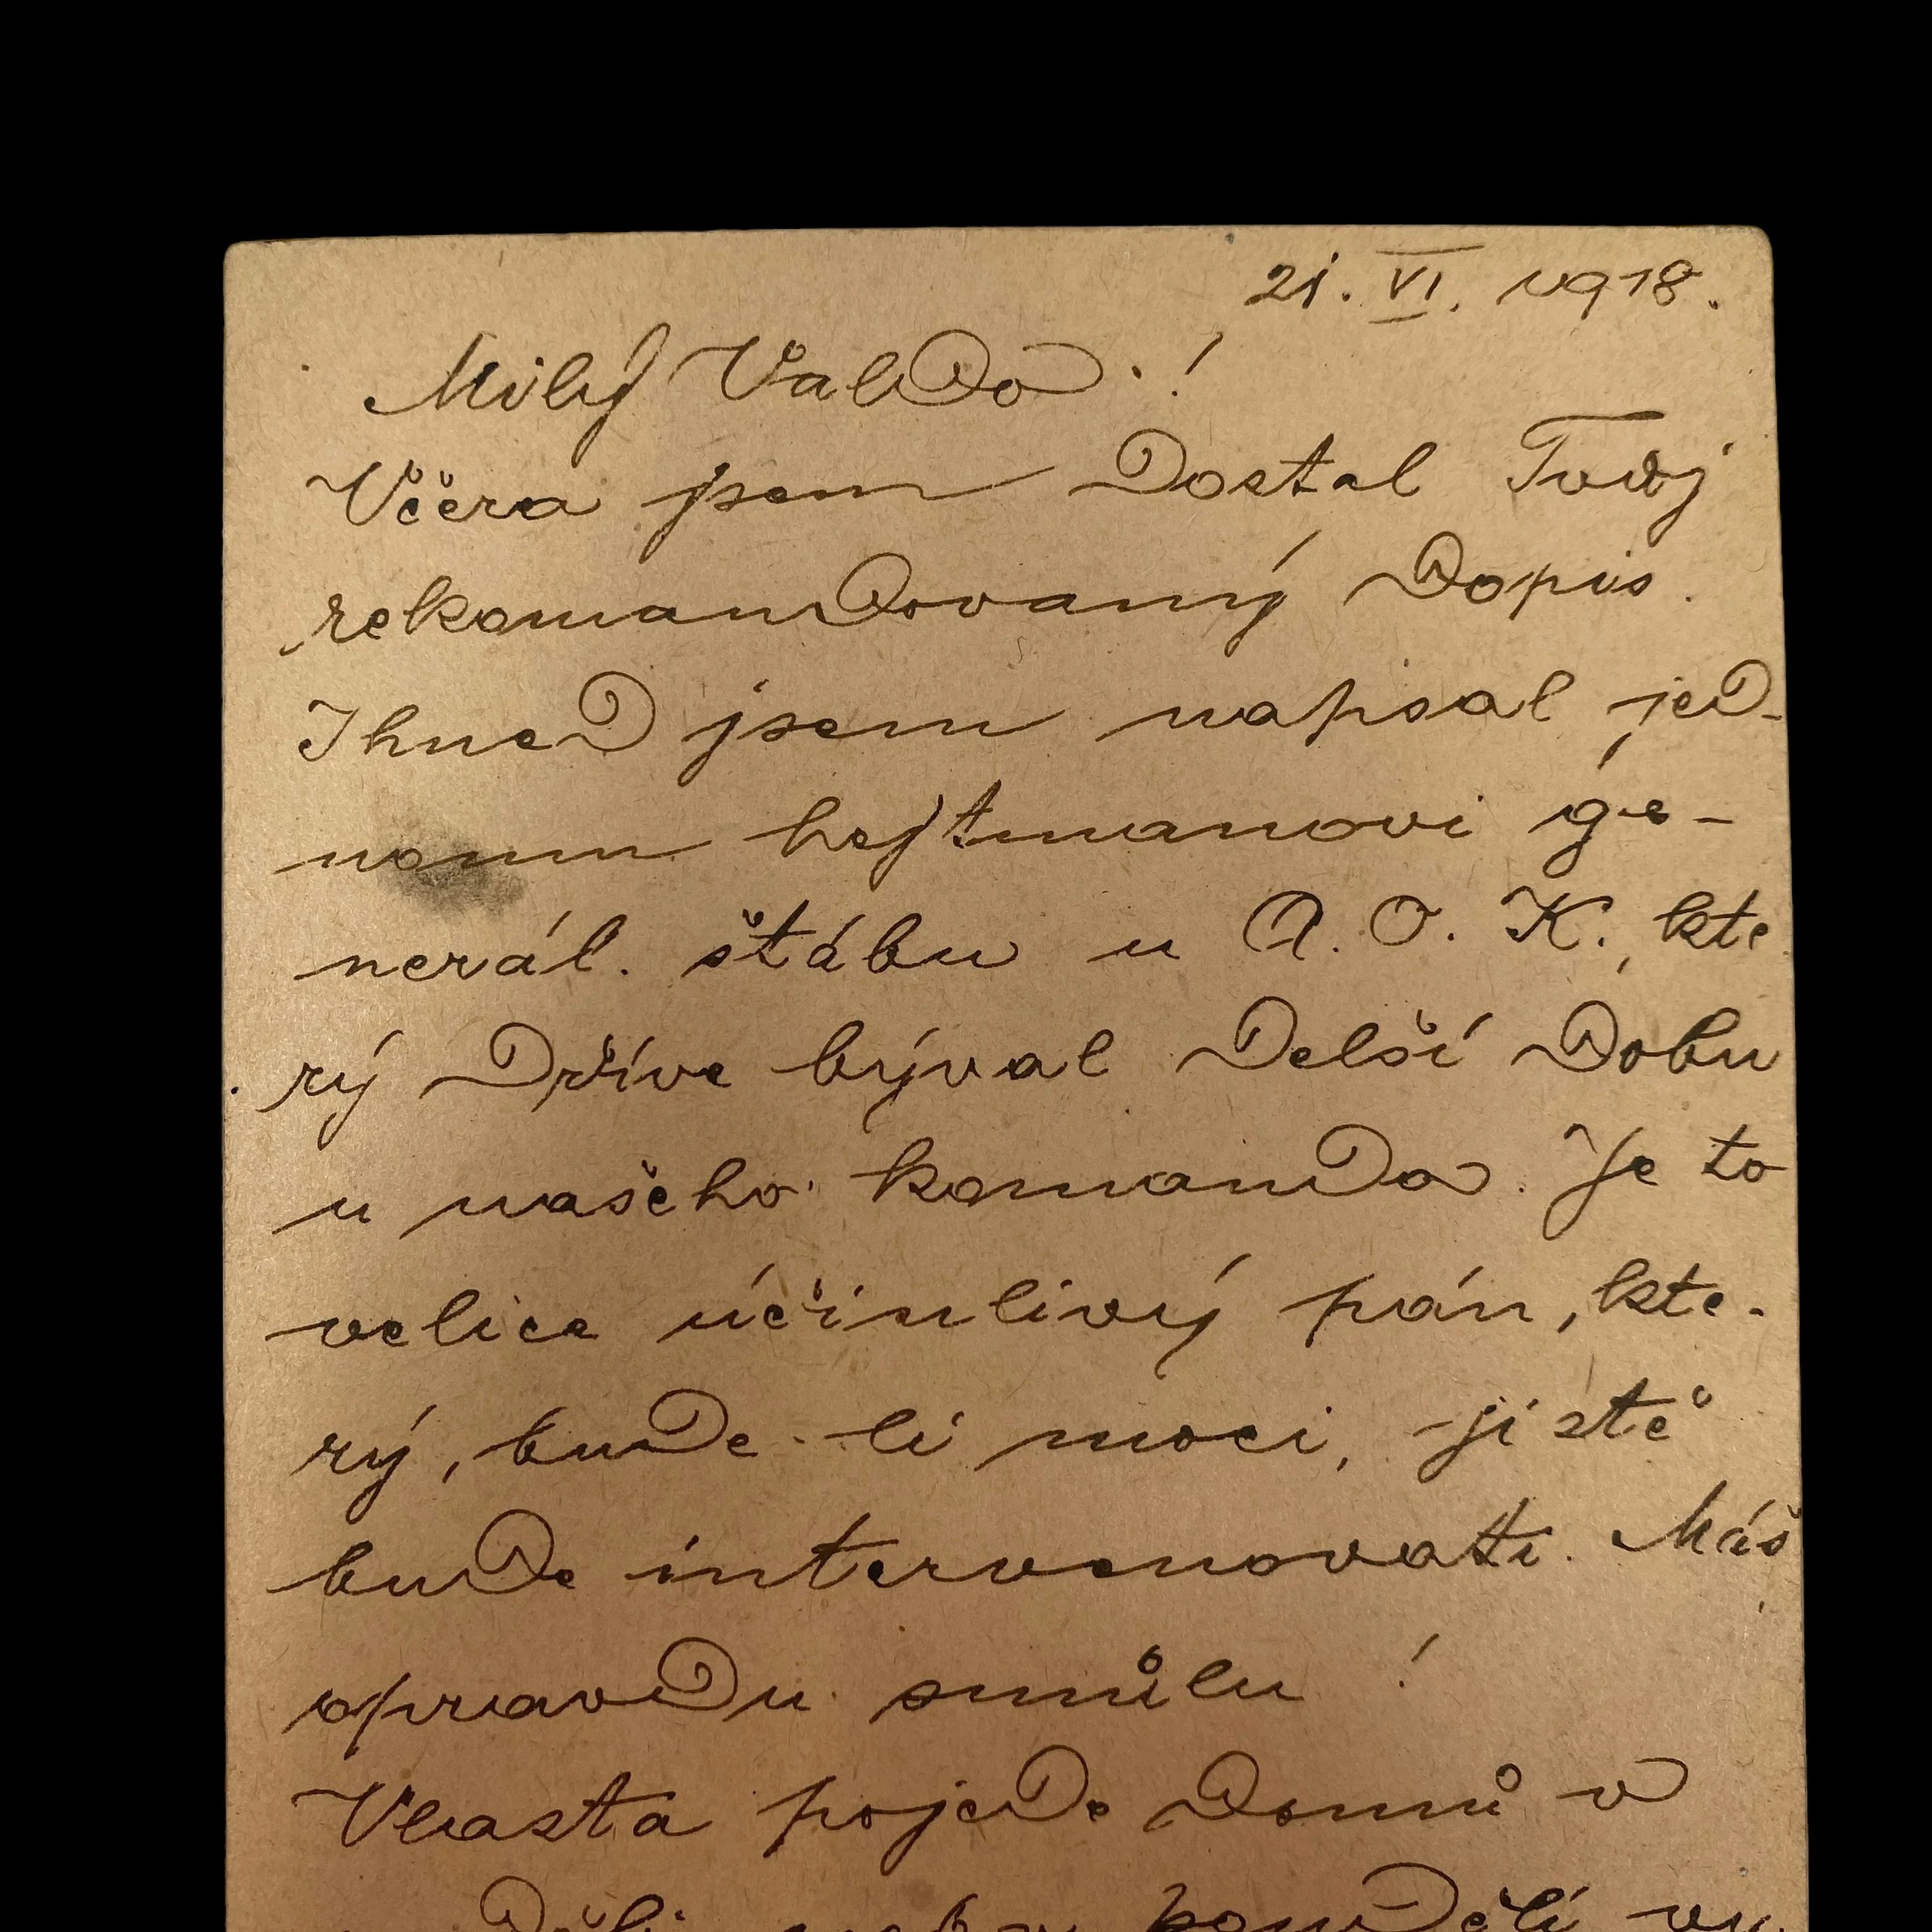 21. VI. 1918.
Milý Valdo!
Včera jsem dostal Tvůj
rekomandovaný dopis.
Ihned jsem napsal jed-
nomu hejtmanovi ge-
nerál. štábu u A. O. K., kte
rý dříve býval delší dobu
u našeho komanda. Je to
velice účinlivý pán, kte-
rý, bude-li moci, jistě
bude intervenovati. Máš
opravdu smůlu!
Vlasta pojede domů v
pondělí